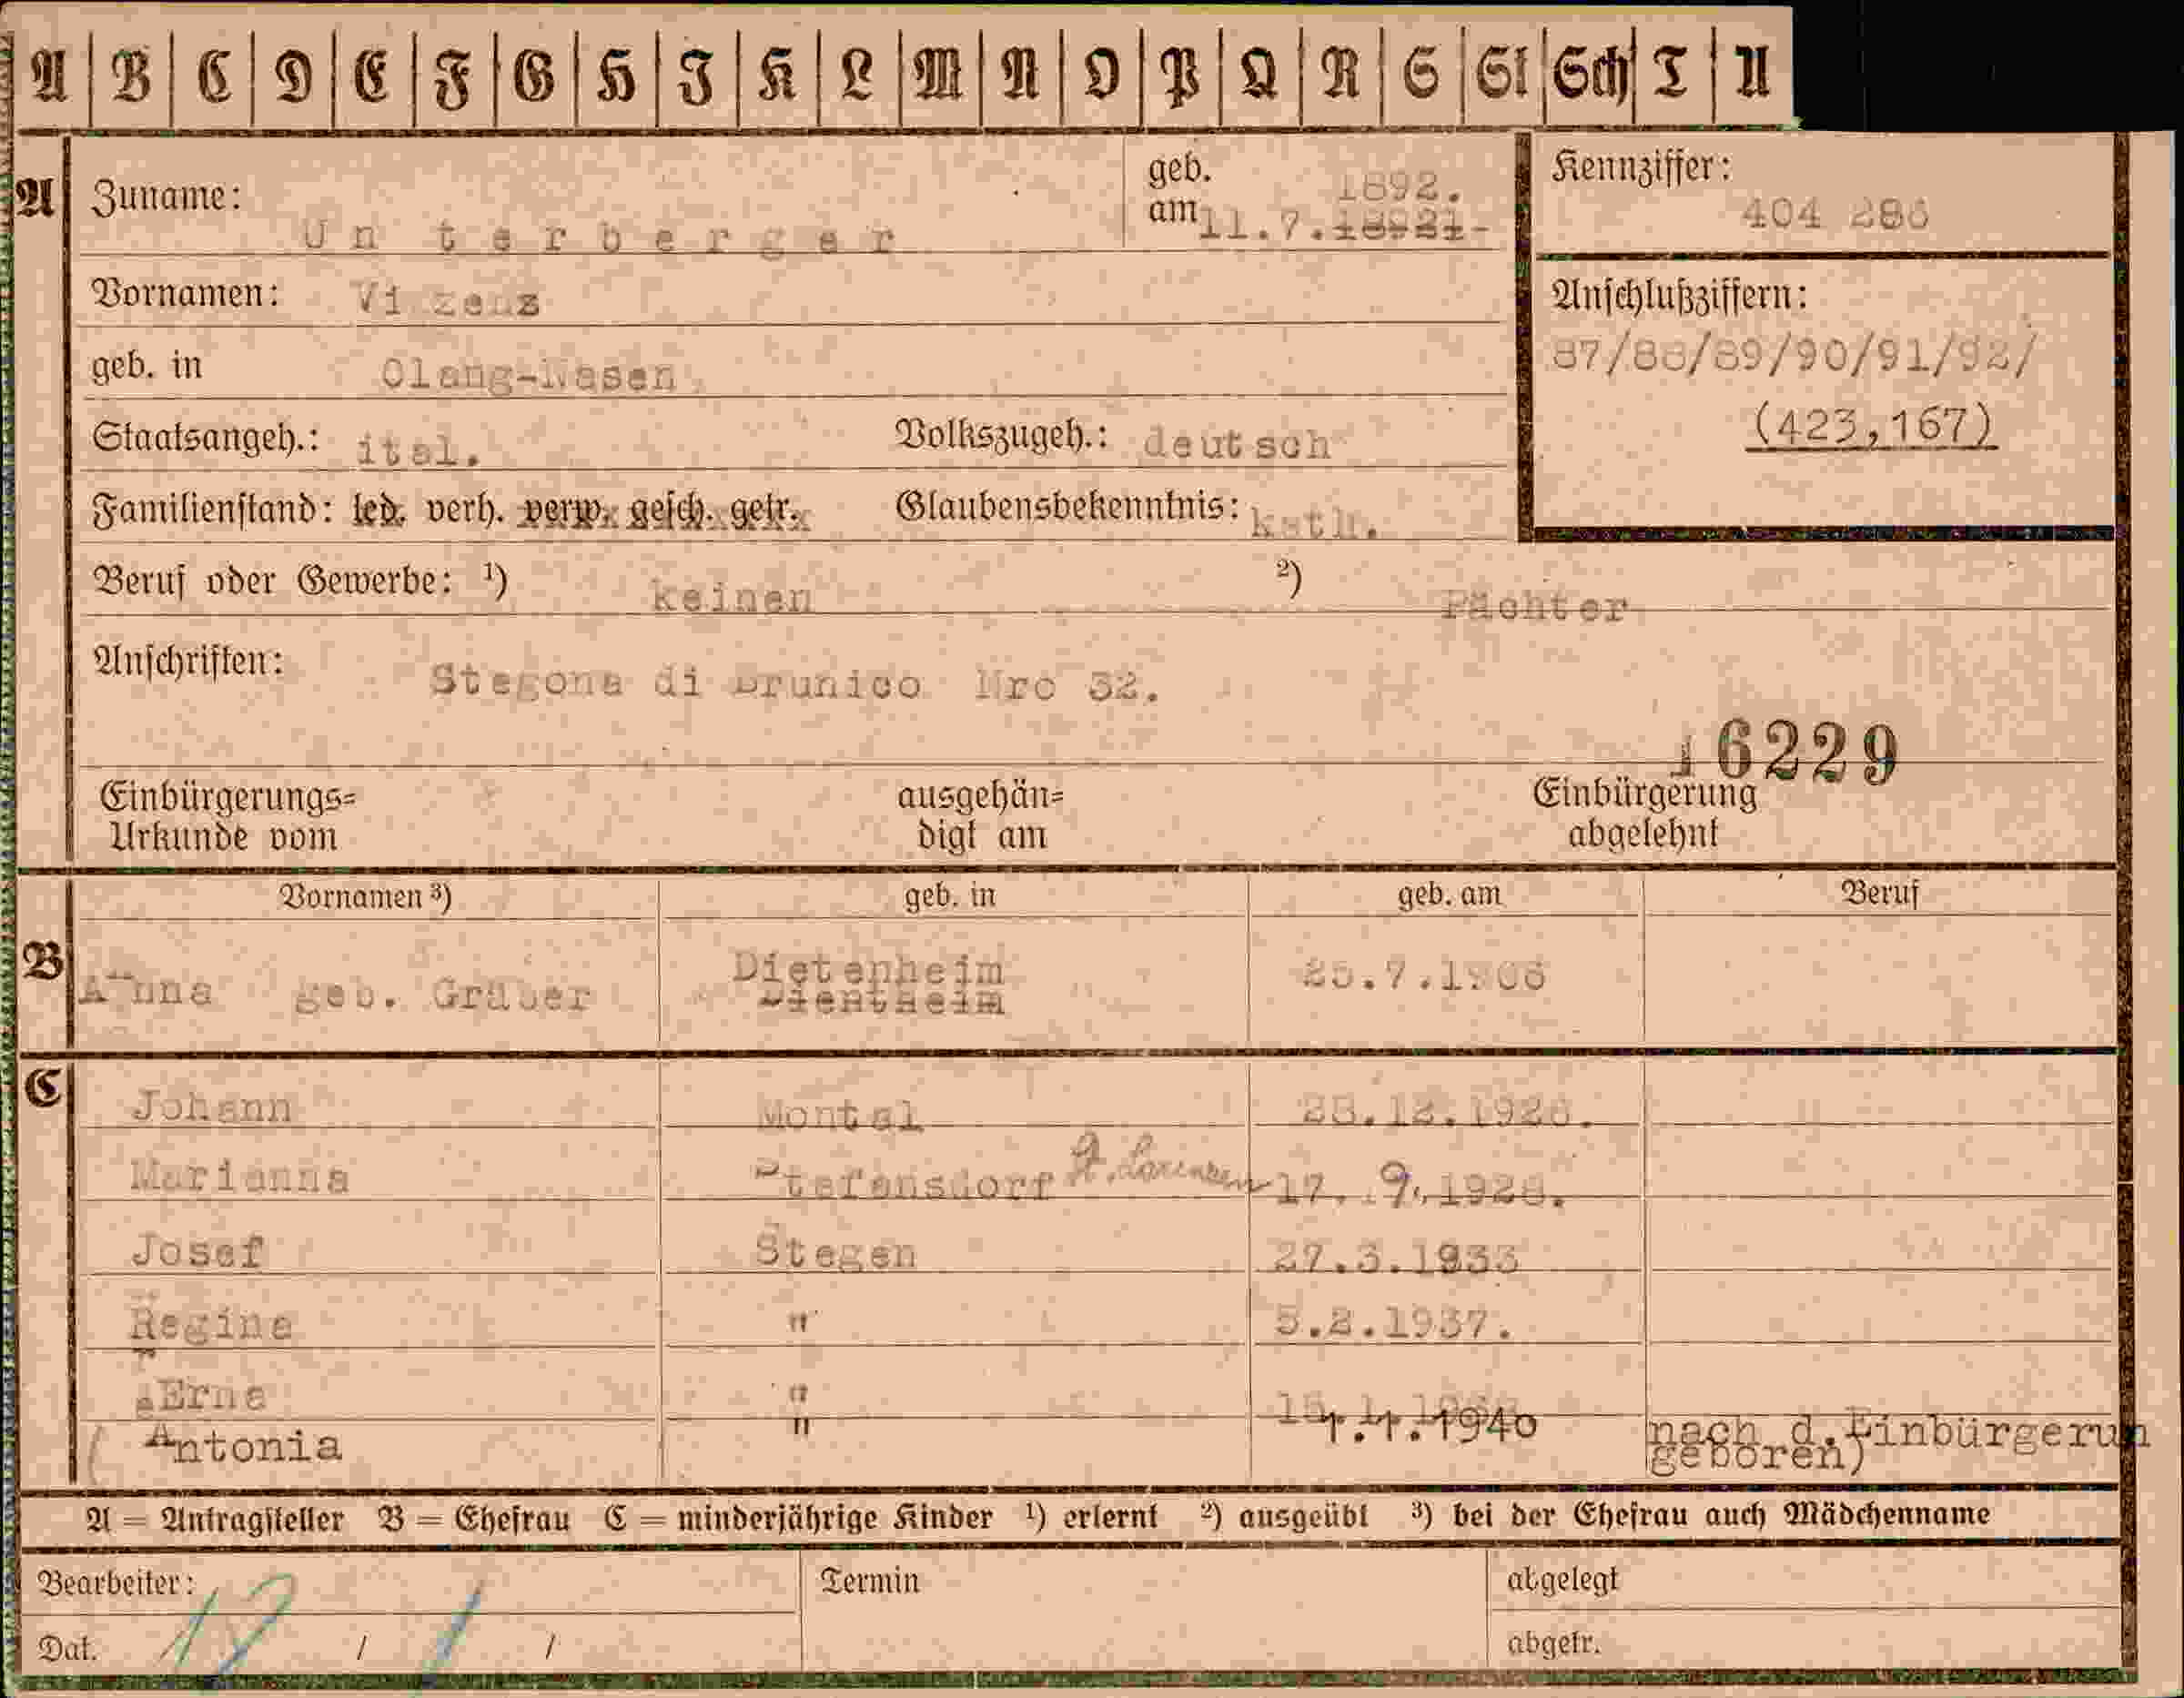 A B C D E F G H J K L M N O P Q R S St Sch T U
A Zuname: Unterberger geb. am 11.7. 1892.
Kennziffer: 404 286
Vornamen: Vi zenz
Anschlußziffern:
87/88/89/90/91/92/
(423,167)
geb. in Olang-
Staatsangeh.: ital. Volkszugeh.: deutsch
Familienstand: led. verh. verw. gesch. getr. Glaubensbekenntnis: kath.
Beruf oder Gewerbe: ¹) keinen ²) Pächter
Anschriften: Stegona di Brunico Nro 32.
16229
Einbürgerungs= Urkunde vom
ausgehän= digt am
Einbürgerung abgelehnt
Vornamen ³) geb. in geb. am Beruf
B Anna geb. Graber Dietenheim Dientheim
C Johann Montal
Marianna Stefansdorf St. Lorenzen 17. 9.
Josef Stegen 27.3.1933
Regina " 5.2.1937.
Erna "
Antonia " 1.1.1940 nach d.Einbürgerun
geboren)
A = Antragsteller B = Ehefrau C = minderjährige Kinder ¹) erlernt ²) ausgeübt ³) bei der Ehefrau auch Mädchenname
Bearbeiter: Termin abgelegt
Dat. / / abgetr.